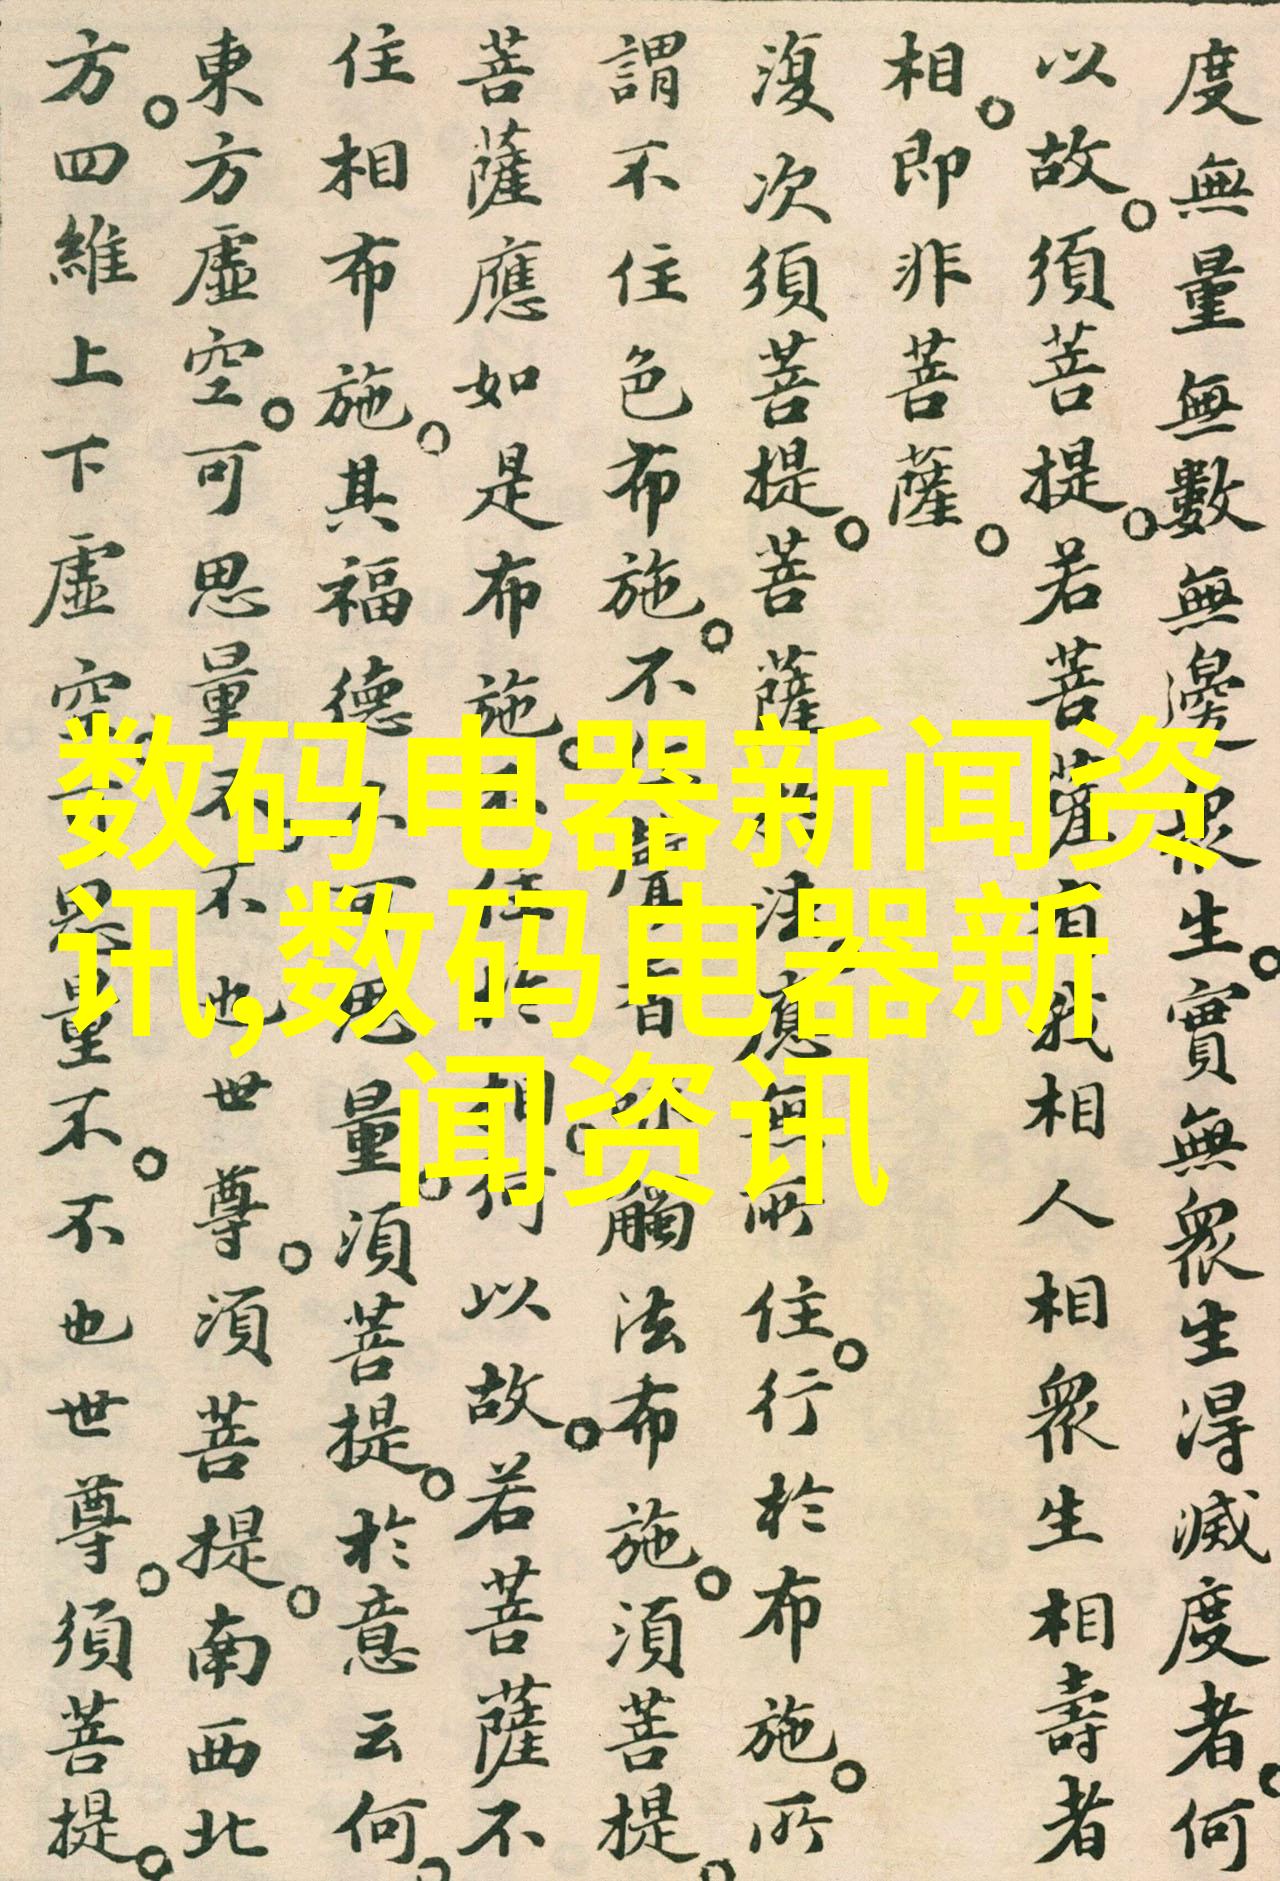 度無量無數無邊衆生實無衆生得滅度者何
以故須菩提若菩薩有我相人相衆生相壽者
相即非菩薩
復次須菩提菩薩於法應無所住行於布施所
謂不住色布施不住聲香味觸法布施須菩提
菩薩應如是布施不住於相何以故若菩薩不
住相布施其福德不可思量須菩提於意云何
東方虛空可思量不不也世尊須菩提南西北
方四維上下虛空可思量不不也世尊須菩提
数码电器新闻资
讯,数码电器新
闻资讯